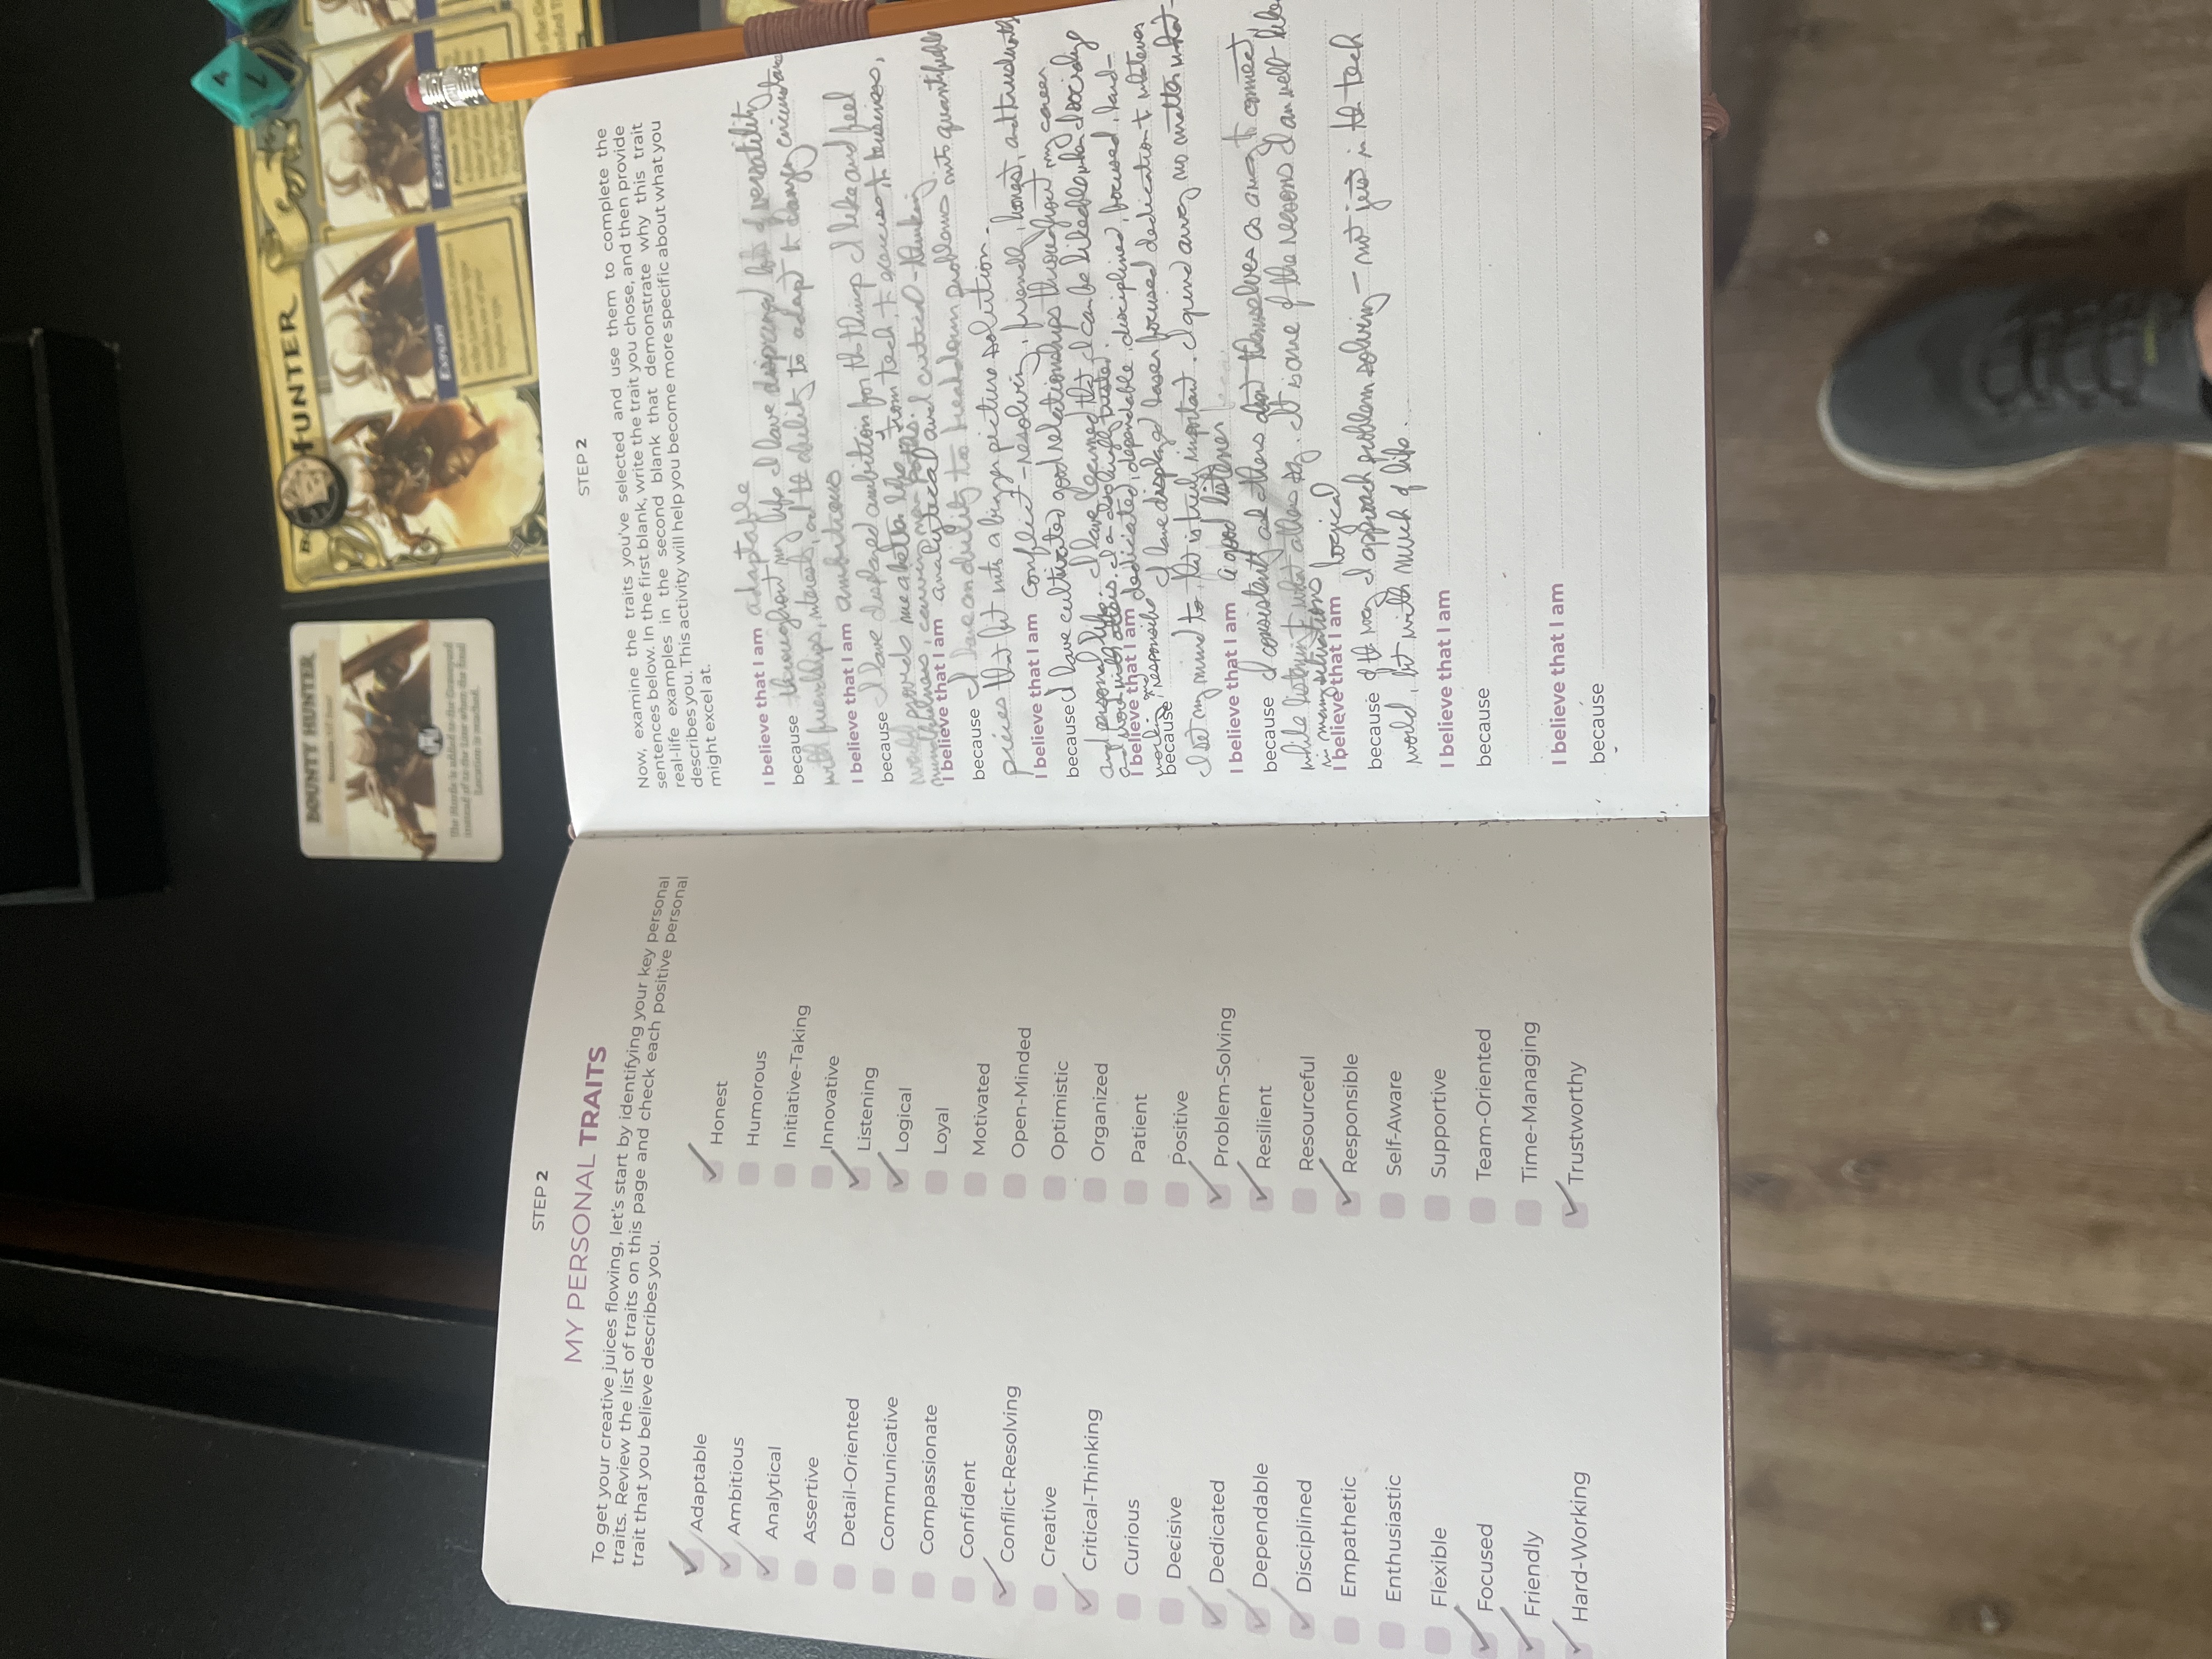 STEP 2
MY PERSONAL TRAITS
To get your creative juices flowing, let's start by identifying your key personal
traits. Review the list of traits on this page and check each positive personal
trait that you believe describes you.
Adaptable
Ambitious
Analytical
Assertive
Detail-Oriented
Communicative
Compassionate
Confident
Conflict-Resolving
Creative
Critical-Thinking
Curious
Decisive
Dedicated
Dependable
Disciplined
Empathetic
Enthusiastic
Flexible
Focused
Friendly
Hard-Working
Honest
Humorous
Initiative-Taking
Innovative
Listening
Logical
Loyal
Motivated
Open-Minded
Optimistic
Organized
Patient
Positive
Problem-Solving
Resilient
Resourceful
Responsible
Self-Aware
Supportive
Team-Oriented
Time-Managing
Trustworthy
STEP 2
Now, examine the traits you've selected and use them to complete the
sentences below. In the first blank, write the trait you chose, and then provide
real-life examples in the second blank that demonstrate why this trait
describes you. This activity will help you become more specific about what you
might excel at.
I believe that I am adaptable
because throughout my life I have displayed lots of versatility
with friendships, interests, and the ability to adapt to changing circumstance
I believe that I am ambitious
because I have displayed ambition for the things I like and feel
would provide me a better life from tech, to exercise to business,
I believe that I am analytical and critical-thinking
because I have an ability to break down problems into quantifiable
pieces that fit into a bigger picture solution.
I believe that I am conflict-resolving, friendly, honest, and trustworthy
because I have cultivated good relationships throughout my career
and personal life. I have learned that I can be likeable when socializing
I believe that I am dedicated, dependable, disciplined, focused, hard-
working, and responsible
because I have displayed laser focused dedication to whatever
I set my mind to that is truly important. I grind away no matter what
I believe that I am a good listener
because I consistently ask others about themselves as a way to connect
while listening to what others say. It is one of the reasons I am well like
in many situations
I believe that I am logical
because of the way I approach problem solving - not just in the tech
world, but with much of life.
I believe that I am
because
I believe that I am
because
HUNTER
EXPLOIT
BOUNTY HUNTER